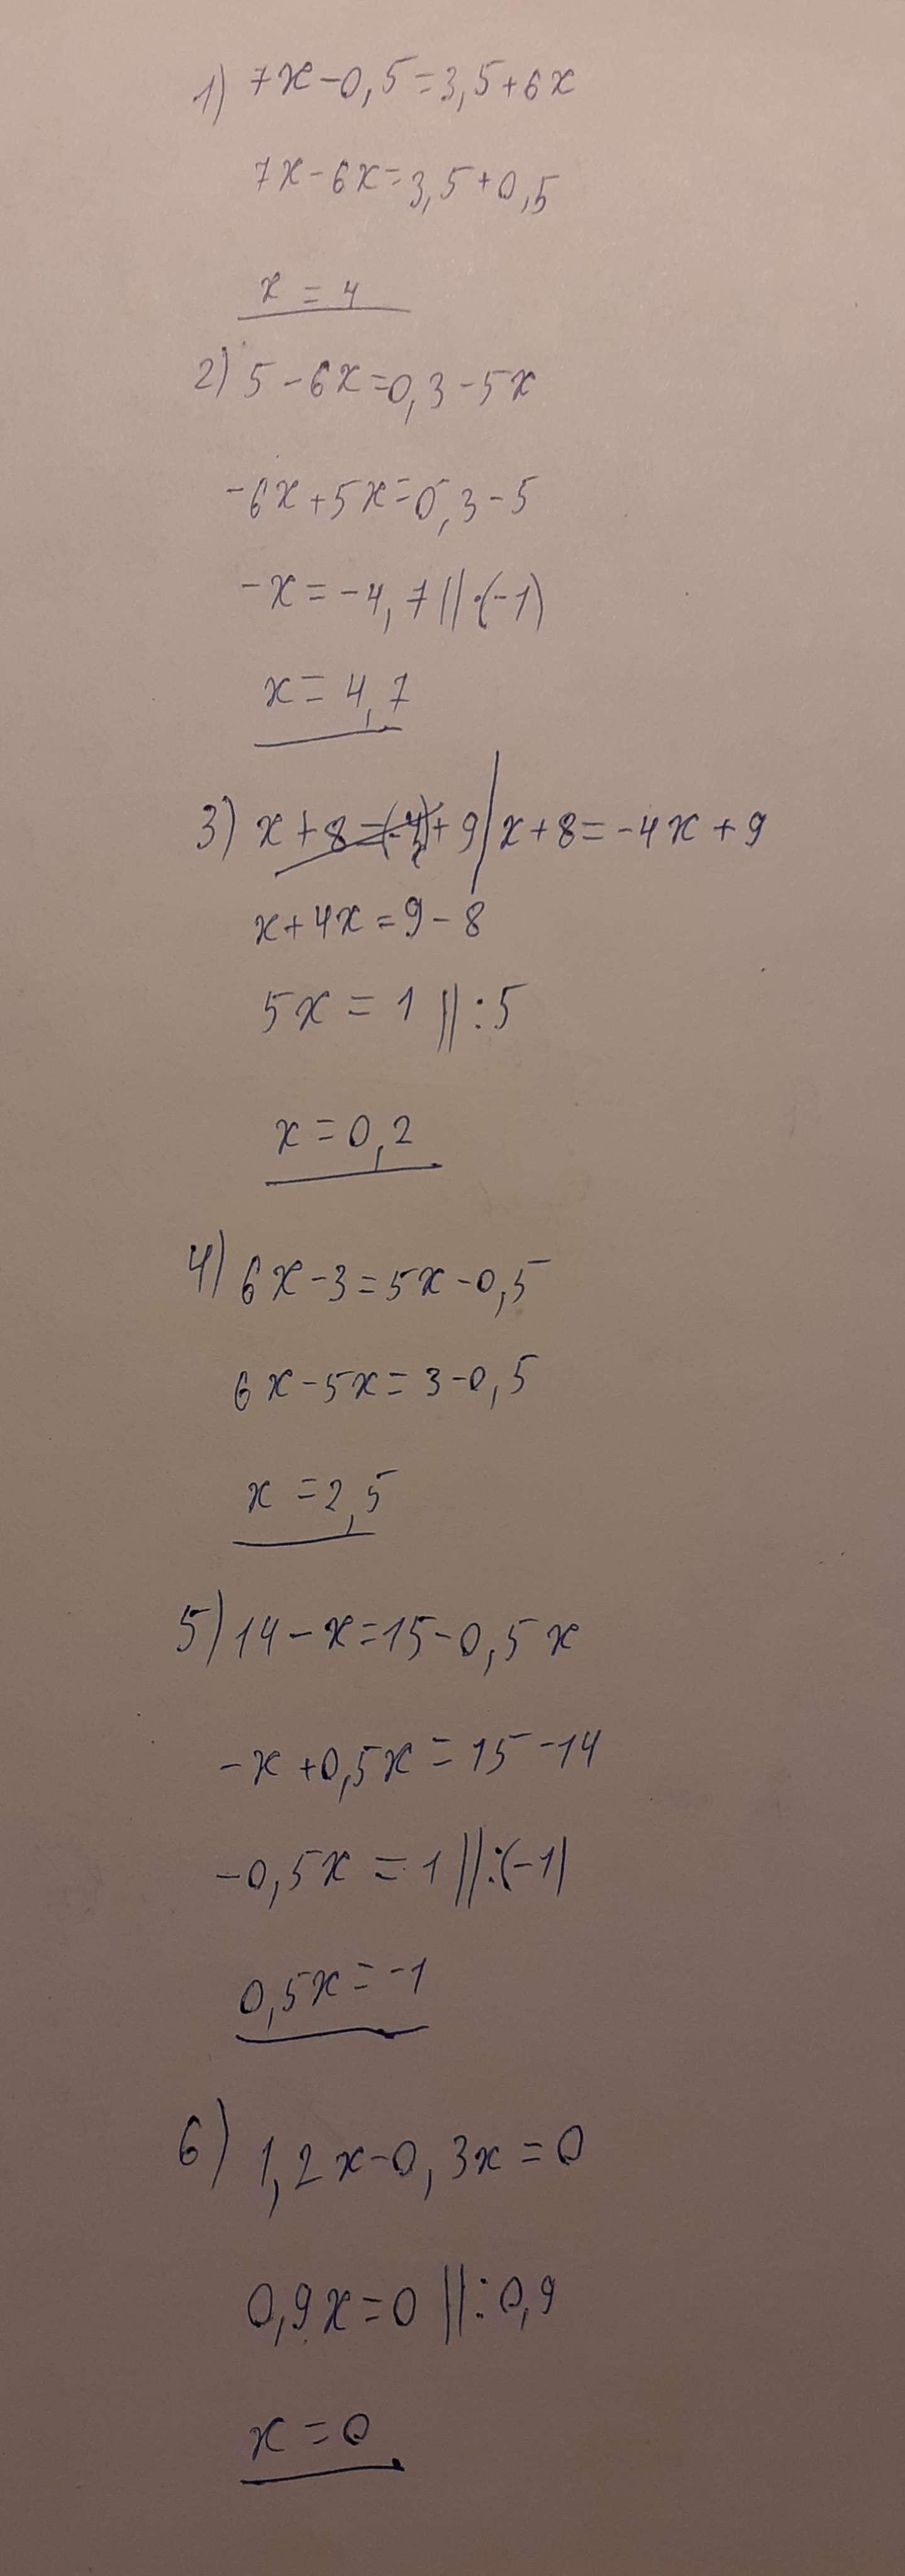 1) 7x-0,5=3,5+6x
7x-6x=3,5+0,5
x=4
2) 5-6x=0,3-5x
-6x+5x=0,3-5
-x=-4,7||·(-1)
x=4,7
3) x+8=(-4)+9/x+8=-4x+9
x+4x=9-8
5x=1||:5
x=0,2
4) 6x-3=5x-0,5
6x-5x=3-0,5
x=2,5
5) 14-x=15-0,5x
-x+0,5x=15-14
-0,5x=1||:(-1)
0,5x=-1
6) 1,2x-0,3x=0
0,9x=0||:0,9
x=0